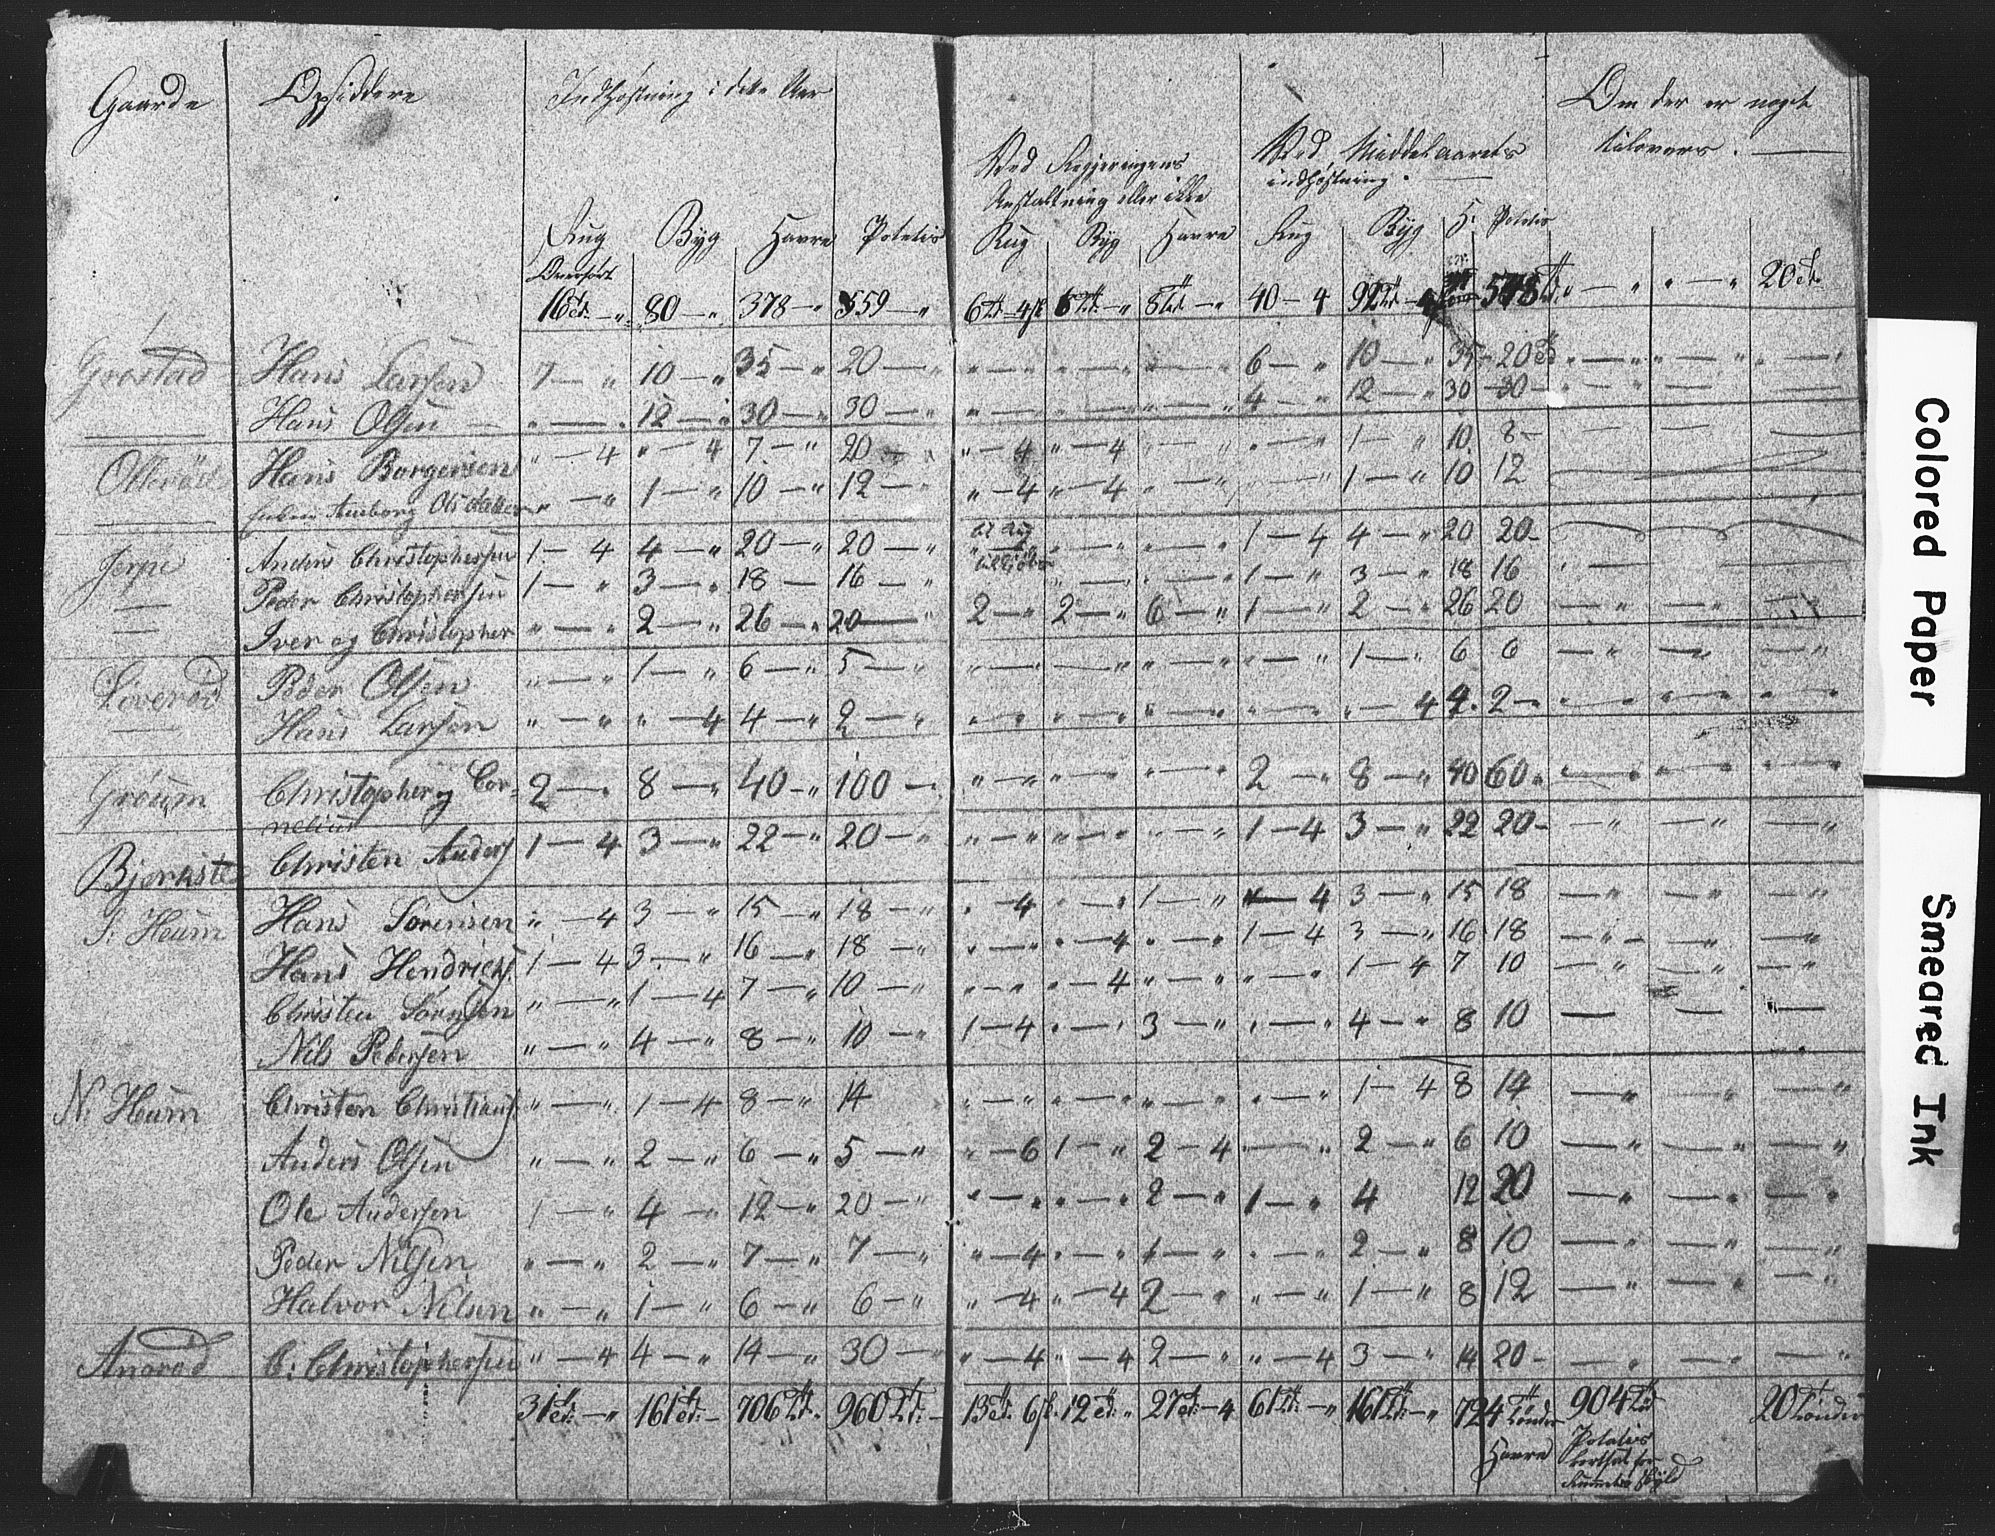 Gaarde Opsiddere Indhøstning i dette Aar Om der er noget
tilovers. —
Ved Regjeringens Ved Middelaarets
Anstaltning eller ikke indhøstning.
Rug Byg Havre Potetis Rug Byg Havre Rug Byg H. Potetis
Overført
16td: — „ 80 — „ 378 — „ 559 — „ 6td — 4 6td: — „ 8td. — „ 40 — 4 92td — 4 578td. „ — „ „ — „ 20td:
Grøstad Hans Larsen 7 — „ 10 — „ 35 — „ 20 — „ „ — „ „ — „ „ — „ 6 — „ 10 — „ 35 — 20td „ — „ „ — „ „ — „
Hans Olsen — „ — „ 12 — „ 30 — „ 30 — „ „ — „ „ — „ „ — „ 4 — „ 12 — „ 30 — 30 — „ — „ „ —
Hans Borgersen „ — 4 „ — 4 7 — „ 20 — „ „ — 4 „ — 4 „ — „ „ — „ 1 — „ 10 8 —
Aasborg Ols datter „ — „ 1 — „ 10 — „ 12 — „ „ — 4 „ — 4 „ — „ „ — „ 1 — „ 10 12
Anders Christophersen 1 — 4 4 — „ 20 — „ 20 — „ „ — „ „ — „ 1 — 4 4 — „ 20 20 —
Jerpe Peder Christophersen 1 — „ 3 — „ 18 — 16 — „ „ — „ „ — „ 1 — „ 3 — „ 18 16 „ —
Iver og Christopher „ — „ 2 — „ 26 — „ 20 — „ 2 — „ 2 — „ 6 — „ 1 — „ 2 — „ 26 20 — „ — „
Liverød Peder Olsen „ — „ 1 — „ 6 — „ 5 — „ „ — „ — „ „ — „ „ — „ 1 — „ 6 6 — „ — „ — „
Hans Larsen „ — „ „ — 4 4 — „ 2 — „ „ — „ „ — „ „ — „ „ — „ „ — 4 4. 2 — „ „ — „ „ — „ „ — „
Grøum Christopher og Cor= 2 — „ 8 — „ 40 — „ 100 — „ „ — „ „ — „ 2 — „ 8 — „ 40 60 „ „ — „ „ — „ „ — „
nelius
Bjerkste Christen Anders 1 — 4 3 — „ 22 — „ 20 — „ „ — „ „ — „ „ — „ 1 — 4 3 — „ 22 20 — — „ — „ — „
S: Heum Hans Sørensen „ — 4 3 — „ 15 — „ 18 — „ „ — 4 „ — „ 1 — „ — 4 3 — „ 15 18 — „ — „ — „
Hans Hendrichs. 1 — 4 3 — „ 16 — „ 18 — „ „ — „ „ — 4 „ — „ 1 — 4 3 — „ 16 18 — „ — — „ — „
Christen Sørensen „ — „ 1 — 4 7 — „ 10 — „ „ — „ „ — 4 „ — „ „ — „ 1 — 4 7 10 — „ — „ — „
Nils Pedersen „ — „ 4 — „ 8 — „ 10 — „ 1 — 4 „ — „ 3 — „ „ — „ 4 — „ 8 10 — — „ —
N: Heum Christen Christians. „ — „ 1 — 4 8 — „ 14 „ — „ „ — „ „ — „ „ — „ 1 — 4 8 14 — „ — „ — „
Anders Olsen „ — „ 2 — „ 6 — „ 5 — „ „ — 6 1 — „ 2 — 4 „ — „ 2 — „ 6 10 — „ — „ — „
Ole Andersen 1 — „ 4 — „ 12 — „ 20 — „ „ — „ „ — „ 2 — „ 1 — „ 4 12 20 — „ — „ — „
Peder Nilsen „ — „ 2 — „ 7 — „ 7 — „ „ — 4 „ — „ 1 — „ „ — „ 2 — „ 8 10 — „ — „ — „
Halvor Nilsen „ — „ 1 — „ 6 — „ 6 — „ „ — 4 „ — 4 2 — „ „ — „ 1 — „ 8 12 — „ — „ — „
Anorød C: Christophersen „ — 4 4 — „ 14 — „ 30 — „ „ — 4 „ — 4 2 — „ „ — 4 3 — „ 14 20 — — „ — „ — „
31td: — „ 161td: — 706td. 960td: — 13td. 6 12td: „ 27td: — 4 61td: — „ 161td: — „ 724 Tønder 904td 20 Tønder
Havre Potetis
Colored Paper
Smeared Ink